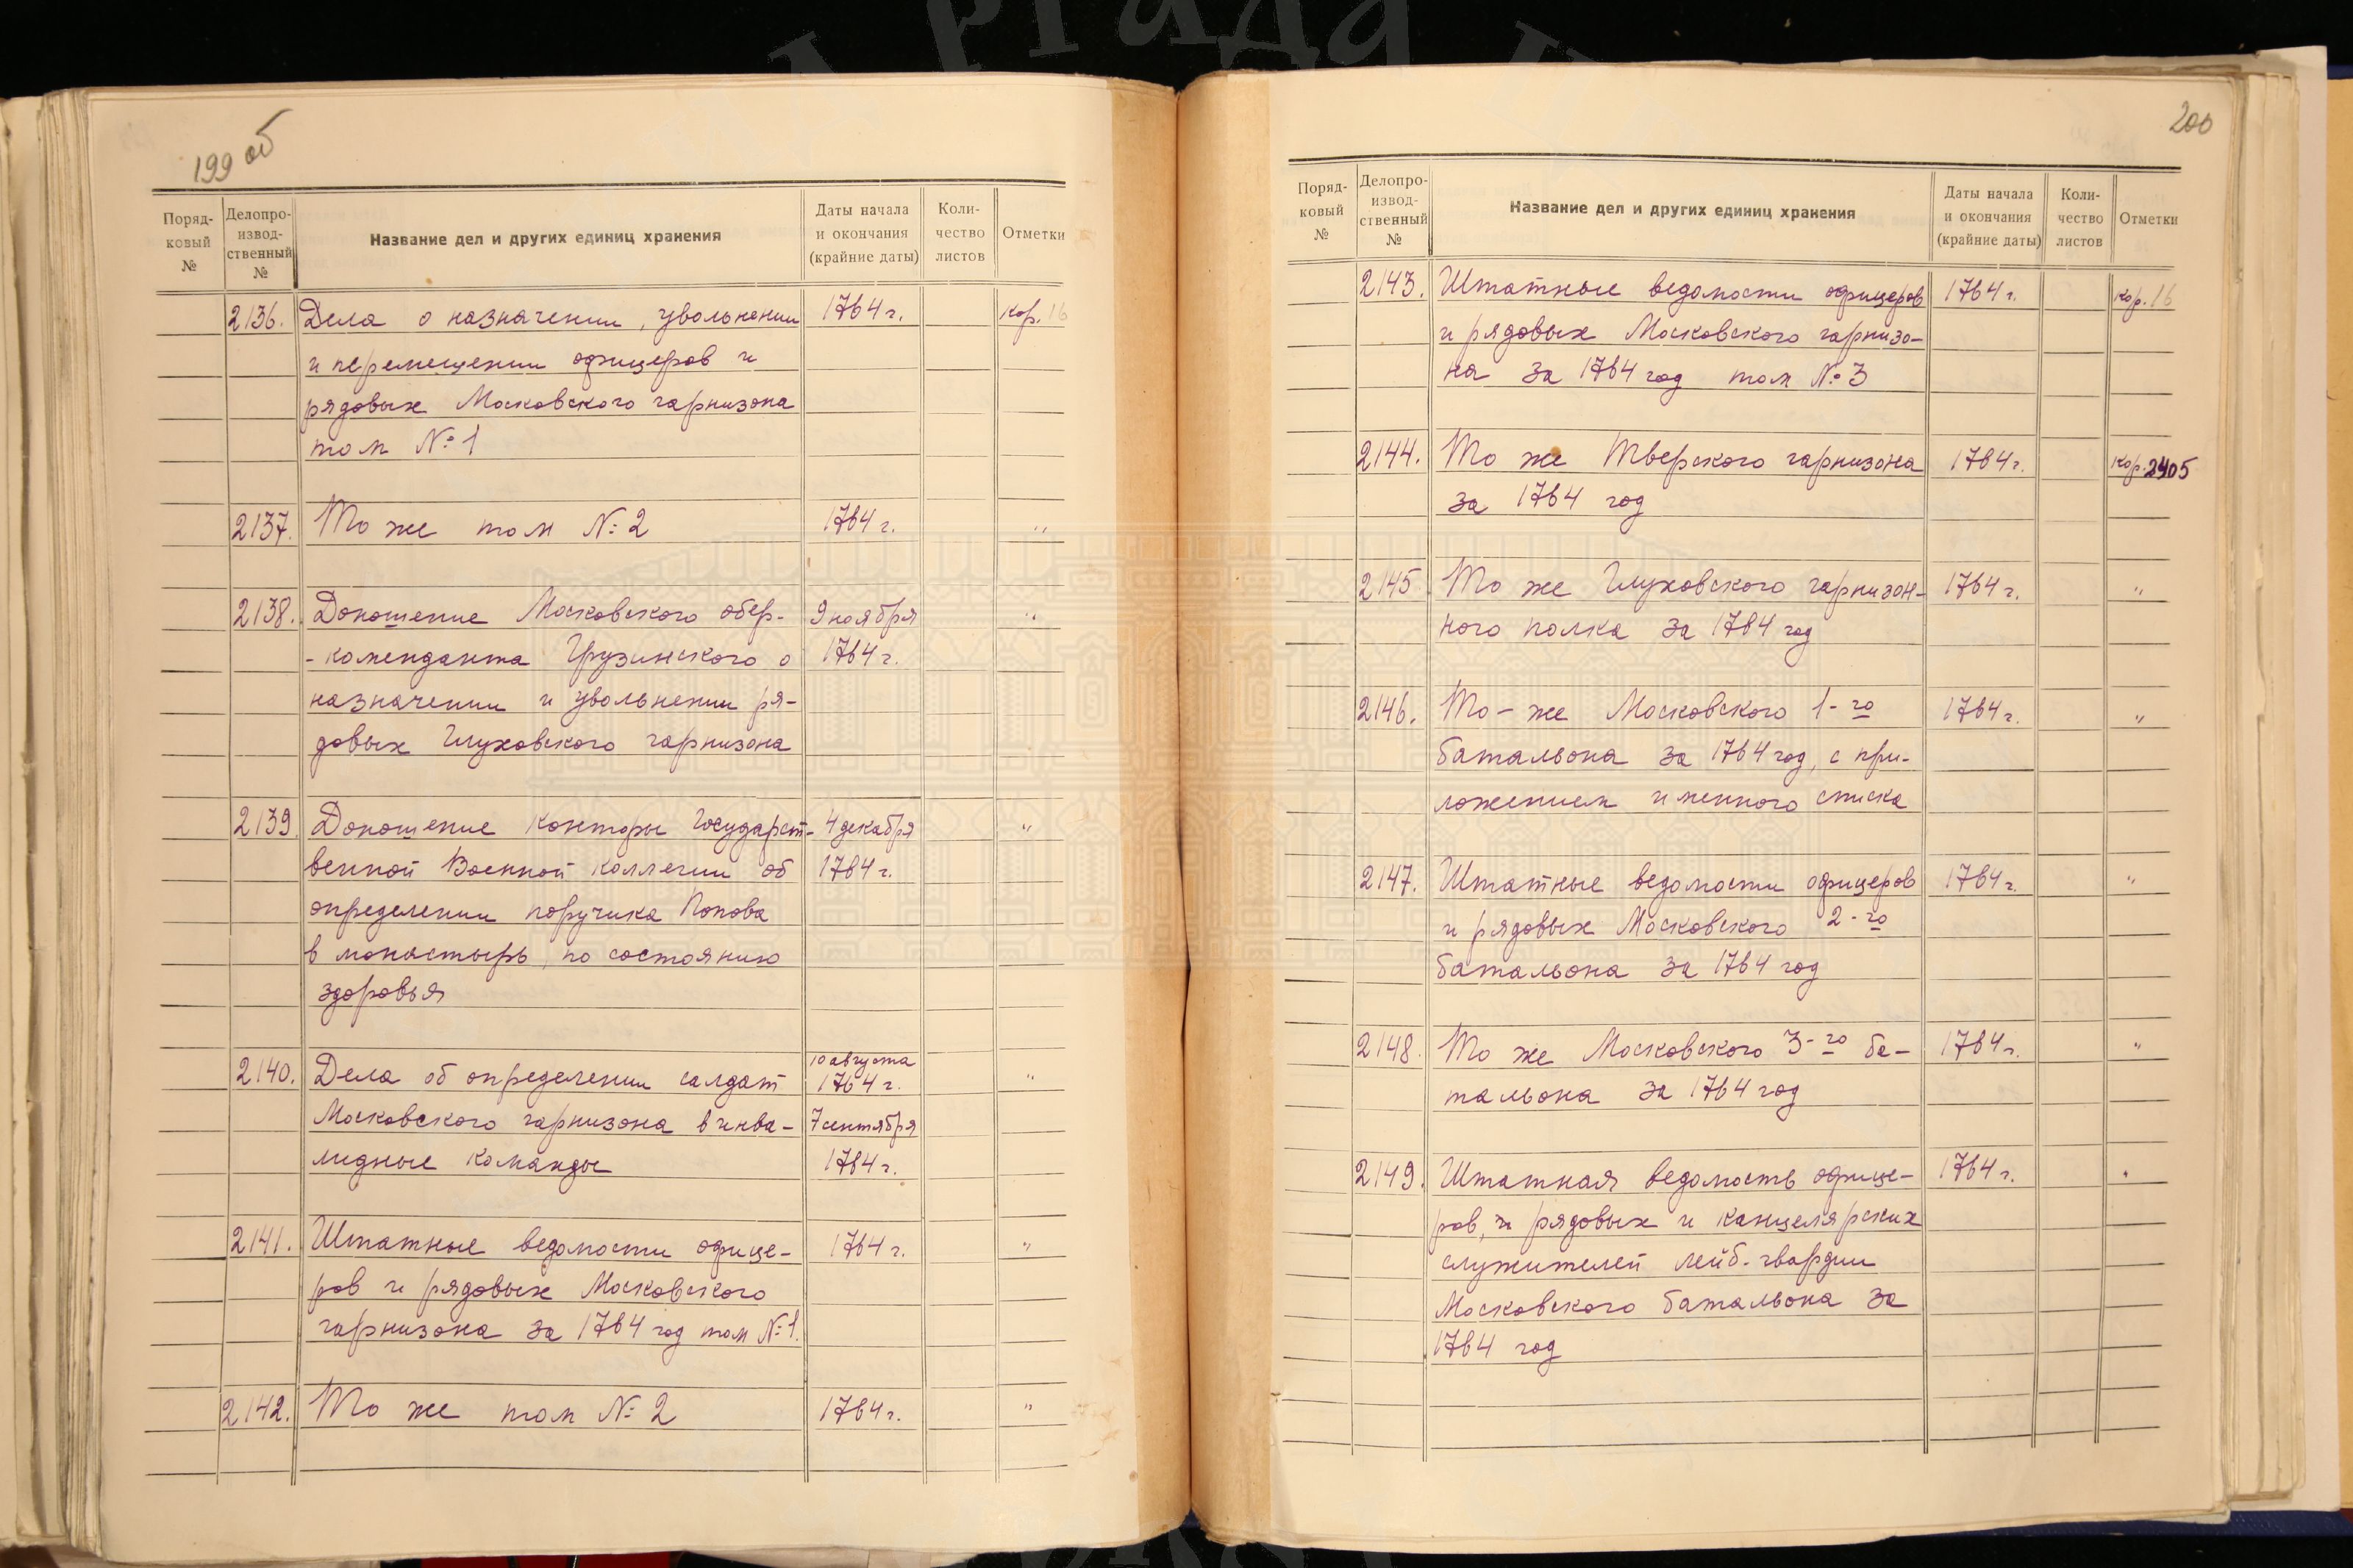 199 об
Поряд-
ковый
№
Делопро-
извод-
ственный
№
Название дел и других единиц хранения
Даты начала
и окончания
(крайние даты)
Коли-
чество
листов
Отметки
2136. Дела о назначении, увольнении 1764 г. кор. 16
и перемещении офицеров и
рядовых Московского гарнизона
том №1
2137. То же том №2 1764 г. "
2138. Доношение Московского обер- 9 ноября "
-коменданта Грузинского о 1764 г.
назначении и увольнении ря-
довых Глуховского гарнизона
2139. Доношение конторы Государст- 4 декабря "
венной Военной коллегии об 1764 г.
определении поручика Попова
в монастырь, по состоянию
здоровья
10 августа
2140. Дела об определении салдат 1764 г. "
Московского гарнизона в инва- 7 сентября
лидные команды 1764 г.
2141. Штатные ведомости офице- 1764 г. "
ров и рядовых Московского
гарнизона за 1764 год том №1.
2142. То же том №2 1764 г. "
200
Поряд-
ковый
№
Делопро-
извод-
ственный
№
Название дел и других единиц хранения
Даты начала
и окончания
(крайние даты)
Коли-
чество
листов
Отметки
2143. Штатные ведомости офицеров 1764 г. кор. 16
и рядовых Московского гарнизо-
на за 1764 год том №3
2144. То же Тверского гарнизона 1764 г. кор. 2405
за 1764 год
2145 То же Глуховского гарнизон- 1764 г. "
ного полка за 1764 год
2146. То-же Московского 1-го 1764 г. "
батальона за 1764 год, с при-
ложением именного списка
2147. Штатные ведомости офицеров 1764 г. "
и рядовых Московского 2-го
батальона за 1764 год
2148. То же Московского 3-го ба- 1764 г. "
тальона за 1764 год
2149. Штатная ведомость офице- 1764 г. "
ров, и рядовых и канцелярских
служителей лейб-гвардии
Московского батальона за
1764 год